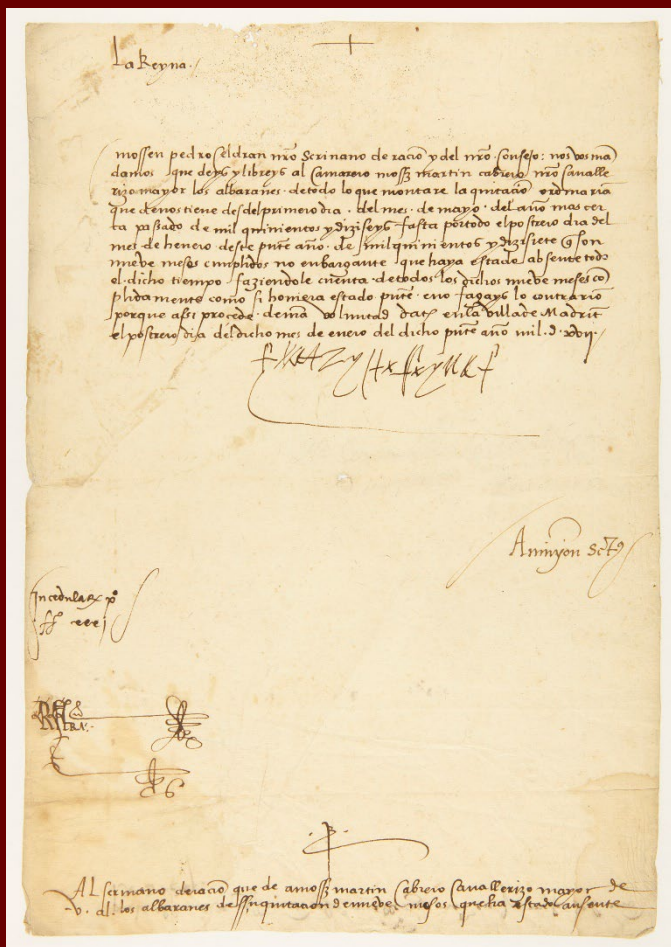 La Reyna.
mossen pedro Celdran nro Scrivano de racio y del nro consejo: nos vos mã
damos que deys y libreys al Camarero mossẽ martin cabrero nro Cavalle
rizo mayor los albaranes de todo lo que montare la quitacio ordinaria
que de nos tiene desdel primero dia . del mes . de mayo . del año mas cer
ca passado de mil quinientos y diziseys fasta por todo el postrero dia del
mes de henero deste pnte año . de mil quinientos y dizisiete q son
nueve meses cumplidos no embargante que haya estado absente todo
el dicho tiempo faziendole cuenta de todos los dichos nueve meses co
plidamente como si hoviera estado pnte . e no fagays lo contrario
porque assi procede de mia voluntad dat en la villa de Madrit
el postrero dia del dicho mes de enero del dicho pnte año mil . d . xvij
Aninyon
In cedularx pº
Al scrivano de racio que de a mossẽ martin Cabrero Cavallerizo mayor de
v. al. los albaranes de su quitacion de nueve meses que ha estado ausente